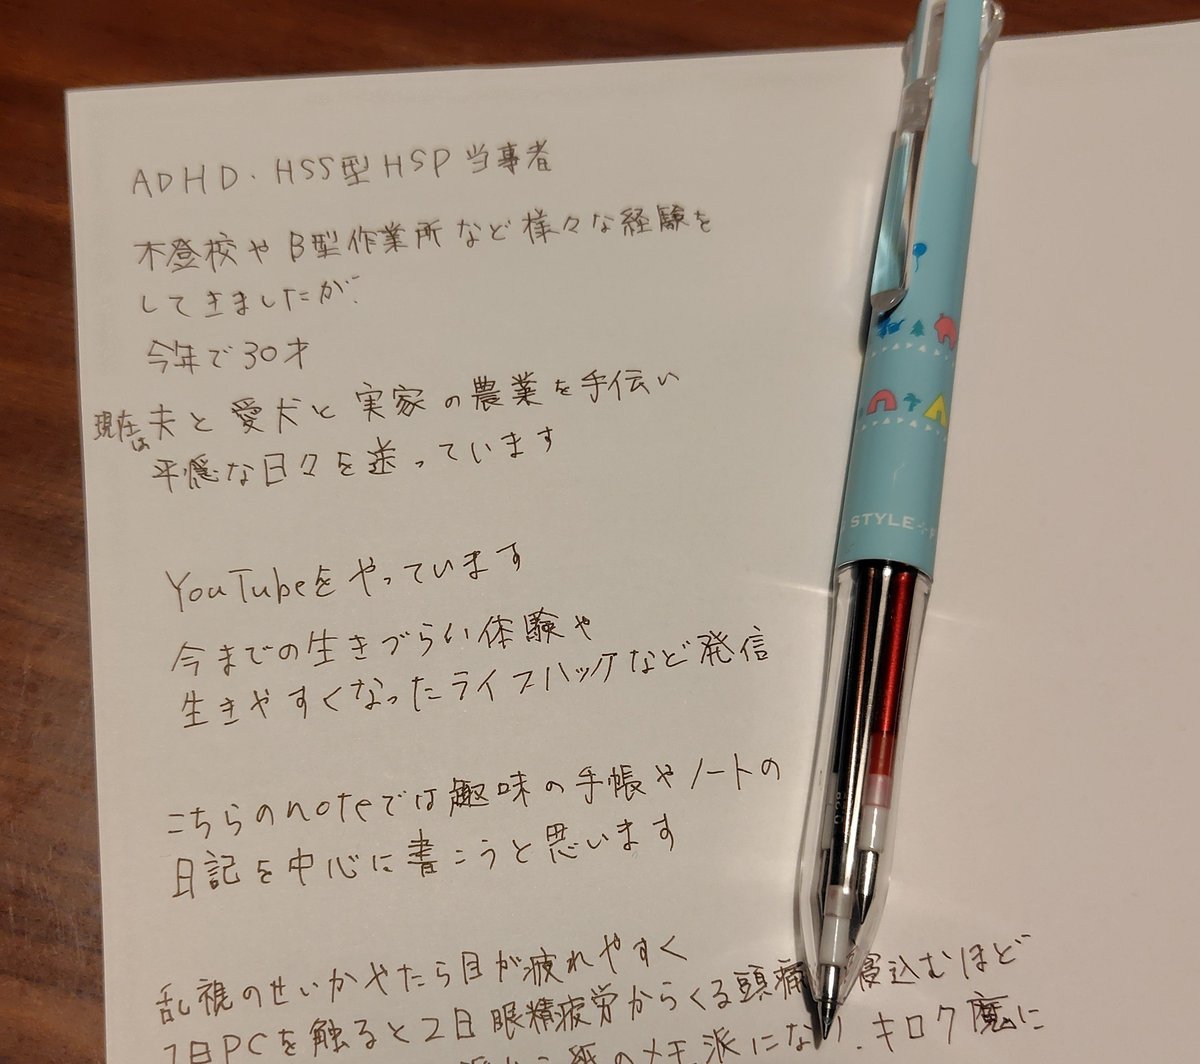 ADHD・HSS型HSP当事者
不登校やB型作業所など様々な経験を
してきましたが、
今年で30才
現在は夫と愛犬と実家の農業を手伝い
平穏な日々を送っています
YouTubeをやっています
今までの生きづらい体験や
生きやすくなったライフハックなど発信
こちらのnoteでは趣味の手帳やノートの
日記を中心に書こうと思います
乱視のせいかやたら目が疲れやすく
1日PCを触ると2日眼精疲労からくる頭痛 寝込むほど
紙のメモ派になり、キロク魔に
STYLE